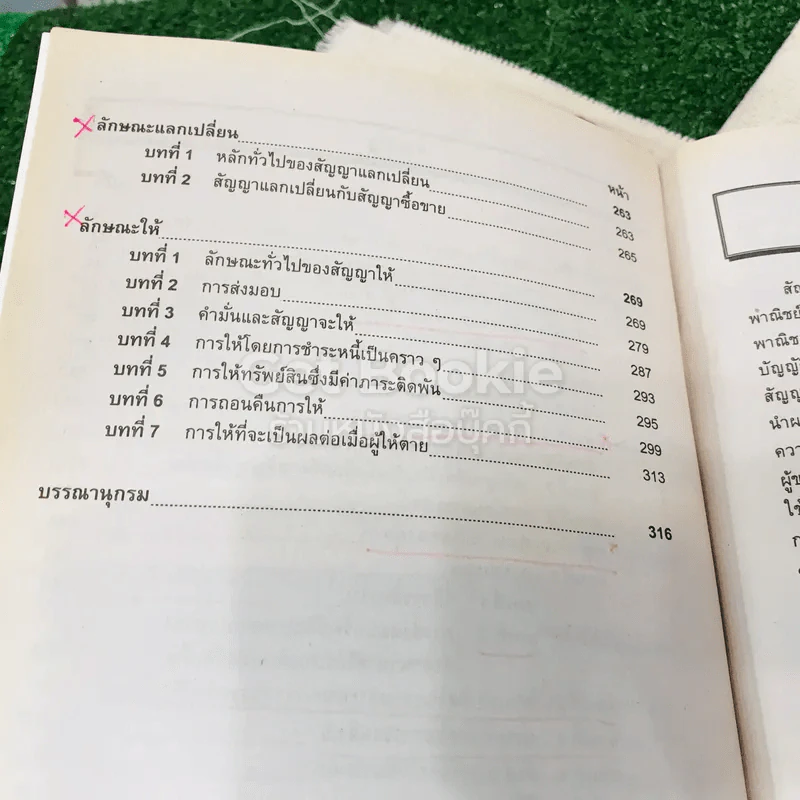 หน้า
ลักษณะแลกเปลี่ยน 263
บทที่ 1 หลักทั่วไปของสัญญาแลกเปลี่ยน 263
บทที่ 2 สัญญาแลกเปลี่ยนกับสัญญาซื้อขาย 265
ลักษณะให้ 269
บทที่ 1 ลักษณะทั่วไปของสัญญาให้ 269
บทที่ 2 การส่งมอบ 279
บทที่ 3 คำมั่นและสัญญาจะให้ 287
บทที่ 4 การให้โดยการชำระหนี้เป็นคราว ๆ 293
บทที่ 5 การให้ทรัพย์สินซึ่งมีค่าภาระติดพัน 295
บทที่ 6 การถอนคืนการให้ 299
บทที่ 7 การให้ที่จะเป็นผลต่อเมื่อผู้ให้ตาย 313
บรรณานุกรม 316
Get Bookie
ร้านหนังสือบุ๊คกี้
สัญ
พาณิชย์
พาณิช
บัญญั
สัญญ
นำผ
ความ
ผู้ข
ใช้
ก